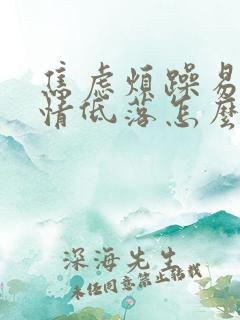 焦虑烦躁易
情低落怎麽
深海先生
未经同意禁止转载